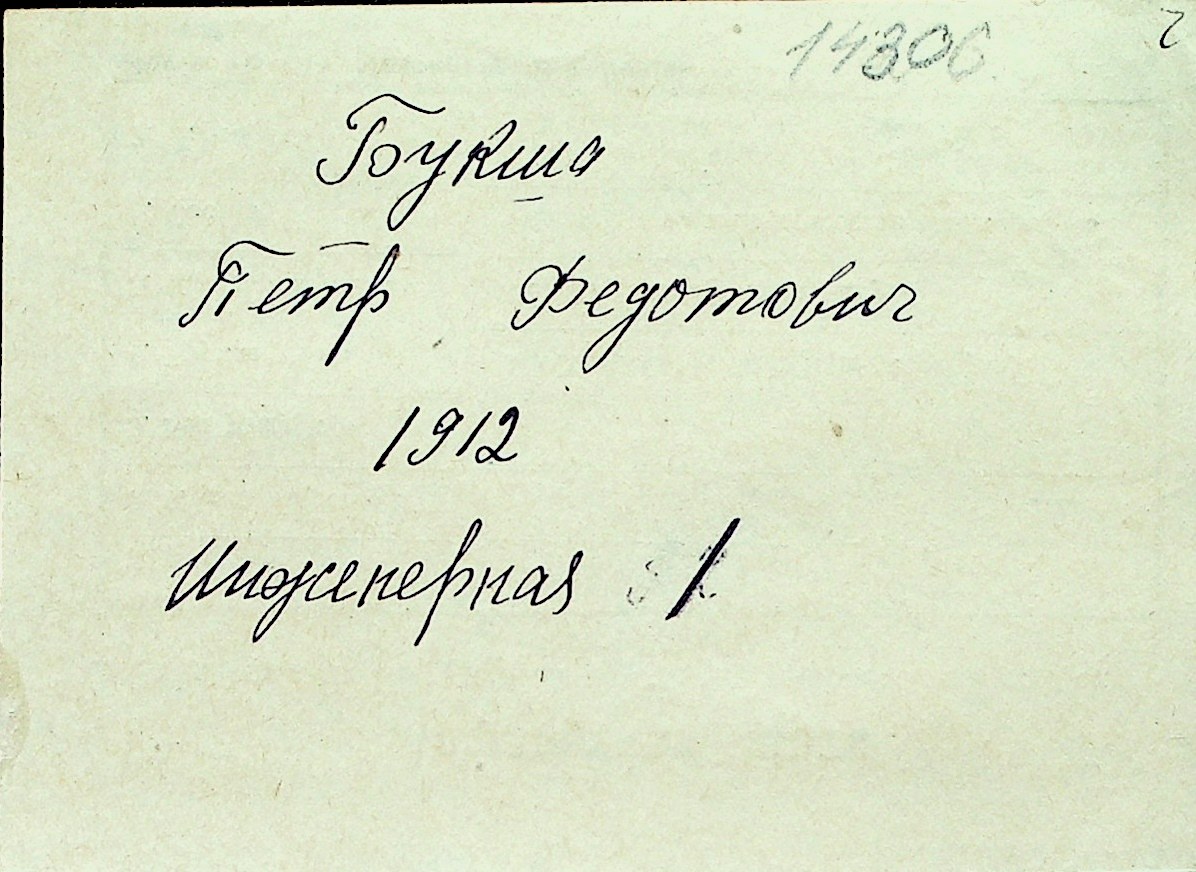 14306
Букша
Петр Федотович
1912
Инженерная